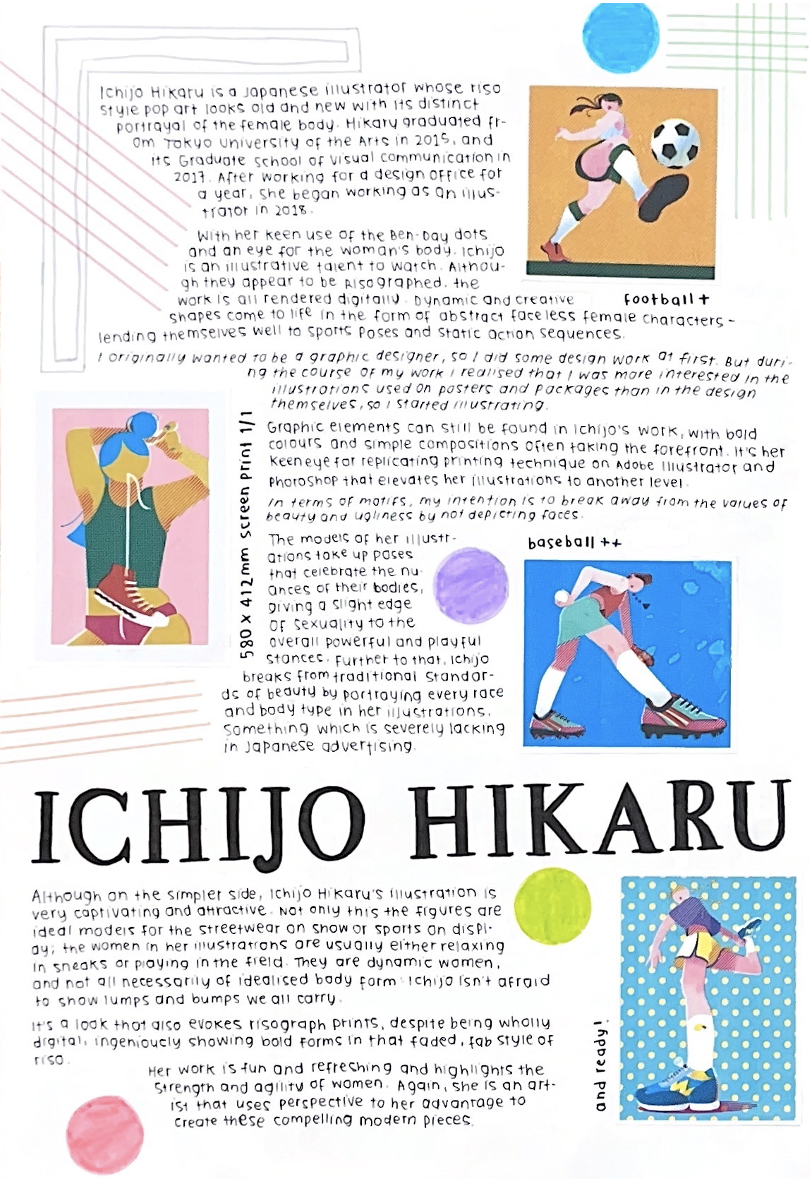 Ichijo Hikaru is a Japanese illustrator whose riso
style pop art looks old and new with its distinct
portrayal of the female body. Hikary graduated fr-
om Tokyo University of the Arts in 2015, and
its Graduate School of Visual Communication in
2017. After working for a design office for
a year, she began working as an illus-
trator in 2018.
With her keen use of the Ben-Day dots
and an eye for the woman's body. Ichijo
is an illustrative talent to watch. Althou-
gh they appear to be Risographed, the
work is all rendered digitally. Dynamic and creative
football +
shapes come to life in the form of abstract faceless female characters -
lending themselves well to sports poses and static action sequences.
I originally wanted to be a graphic designer, so I did some design work at first. But duri-
ng the course of my work I realised that I was more interested in the
illustrations used on posters and packages than in the design
themselves, so I started illustrating.
580 x 412 mm screen print 1/1
Graphic elements can still be found in Ichijo's work, with bold
colours and simple compositions often taking the forefront. It's her
keen eye for replicating printing technique on Adobe Illustrator and
Photoshop that elevates her illustrations to another level.
In terms of motifs, my intention is to break away from the values of
beauty and ugliness by not depicting faces.
baseball ++
The models of her illustr-
ations take up poses
that celebrate the nu-
ances of their bodies,
giving a slight edge
of sexuality to the
overall powerful and playful
stances. Further to that, Ichijo
breaks from traditional standar-
ds of beauty by portraying every race
and body type in her illustrations.
Something which is severely lacking
in Japanese advertising.
ICHIJO HIKARU
Although on the simpler side, Ichijo Hikaru's illustration is
very captivating and attractive. Not only this the figures are
ideal models for the streetwear on show or sports on displ-
ay; the women in her illustrations are usually either relaxing
in sneaks or playing in the field. They are dynamic women,
and not all necessarily of idealised body form. Ichijo isn't afraid
to show lumps and bumps we all carry.
It's a look that also evokes risograph prints, despite being wholly
digital, ingeniously showing bold forms in that faded, fab style of
riso.
Her work is fun and refreshing and highlights the
strength and agility of women. Again, she is an art-
ist that uses perspective to her advantage to
create these compelling modern pieces.
and ready!